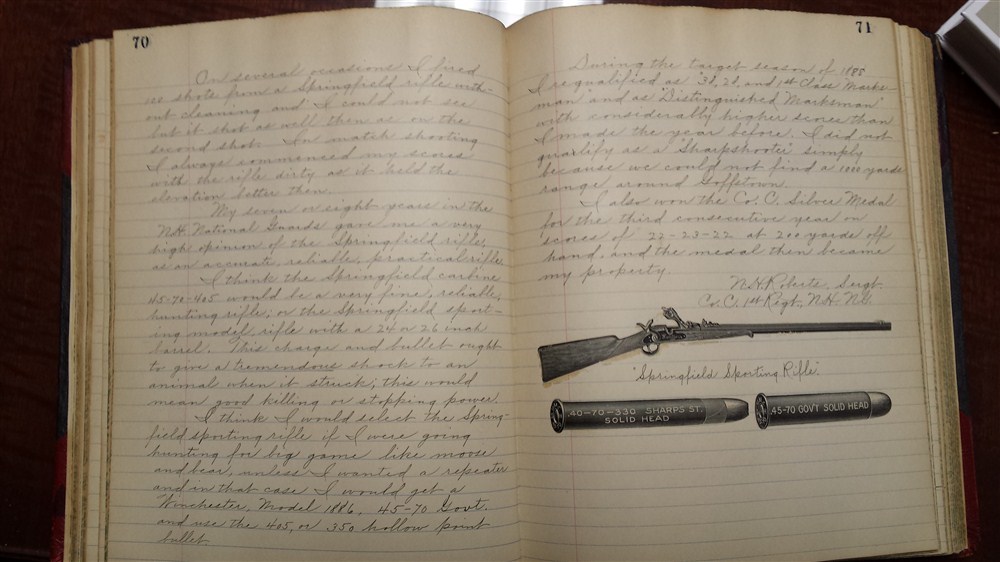 70
On several occasions I fired
shots from a Springfield rifle with-
out cleaning and I could not see
but it shot as well then as on the
second shot. In match shooting
I always commenced my scores
with the rifle dirty as it held the
elevation better then.
My seven or eight years in the
N.H. National Guards gave me a very
high opinion of the Springfield rifle,
as an accurate, reliable, practical rifle.
I think the Springfield carbine
45-70-405 would be a very fine, reliable,
hunting rifle; or the Springfield sport-
ing model rifle with a 24 or 26 inch
barrel. This charge and bullet ought
to give a tremendous shock to an
animal when it struck; this would
mean good killing or stopping power.
I think I would select the Spring-
field sporting rifle if I were going
hunting for big game like moose
and bear, unless I wanted a repeater
and in that case I would get a
Winchester, Model 1886, 45-70 Govt.
and use the 405, or 350 hollow point
bullet.
71
During the target season of 1885
I requalified as 3d, 2d, and 1st Class Marks-
man and as "Distinguished Marksman"
with considerably higher scores than
I made the year before. I did not
qualify as a "Sharpshooter" simply
because we could not find a 1000 yards
range around Goffstown.
I also won the Co. C. Silver Medal
for the third consecutive year on
scores of 22-23-22 at 200 yards off
hand, and the medal then became
my property.
N.H. Roberts, Sergt.
Co. C. 1st Regt. N.H. N.G.
"Springfield Sporting Rifle."
.40-70-330 SHARPS ST.
SOLID HEAD
.45-70 GOVT SOLID HEAD